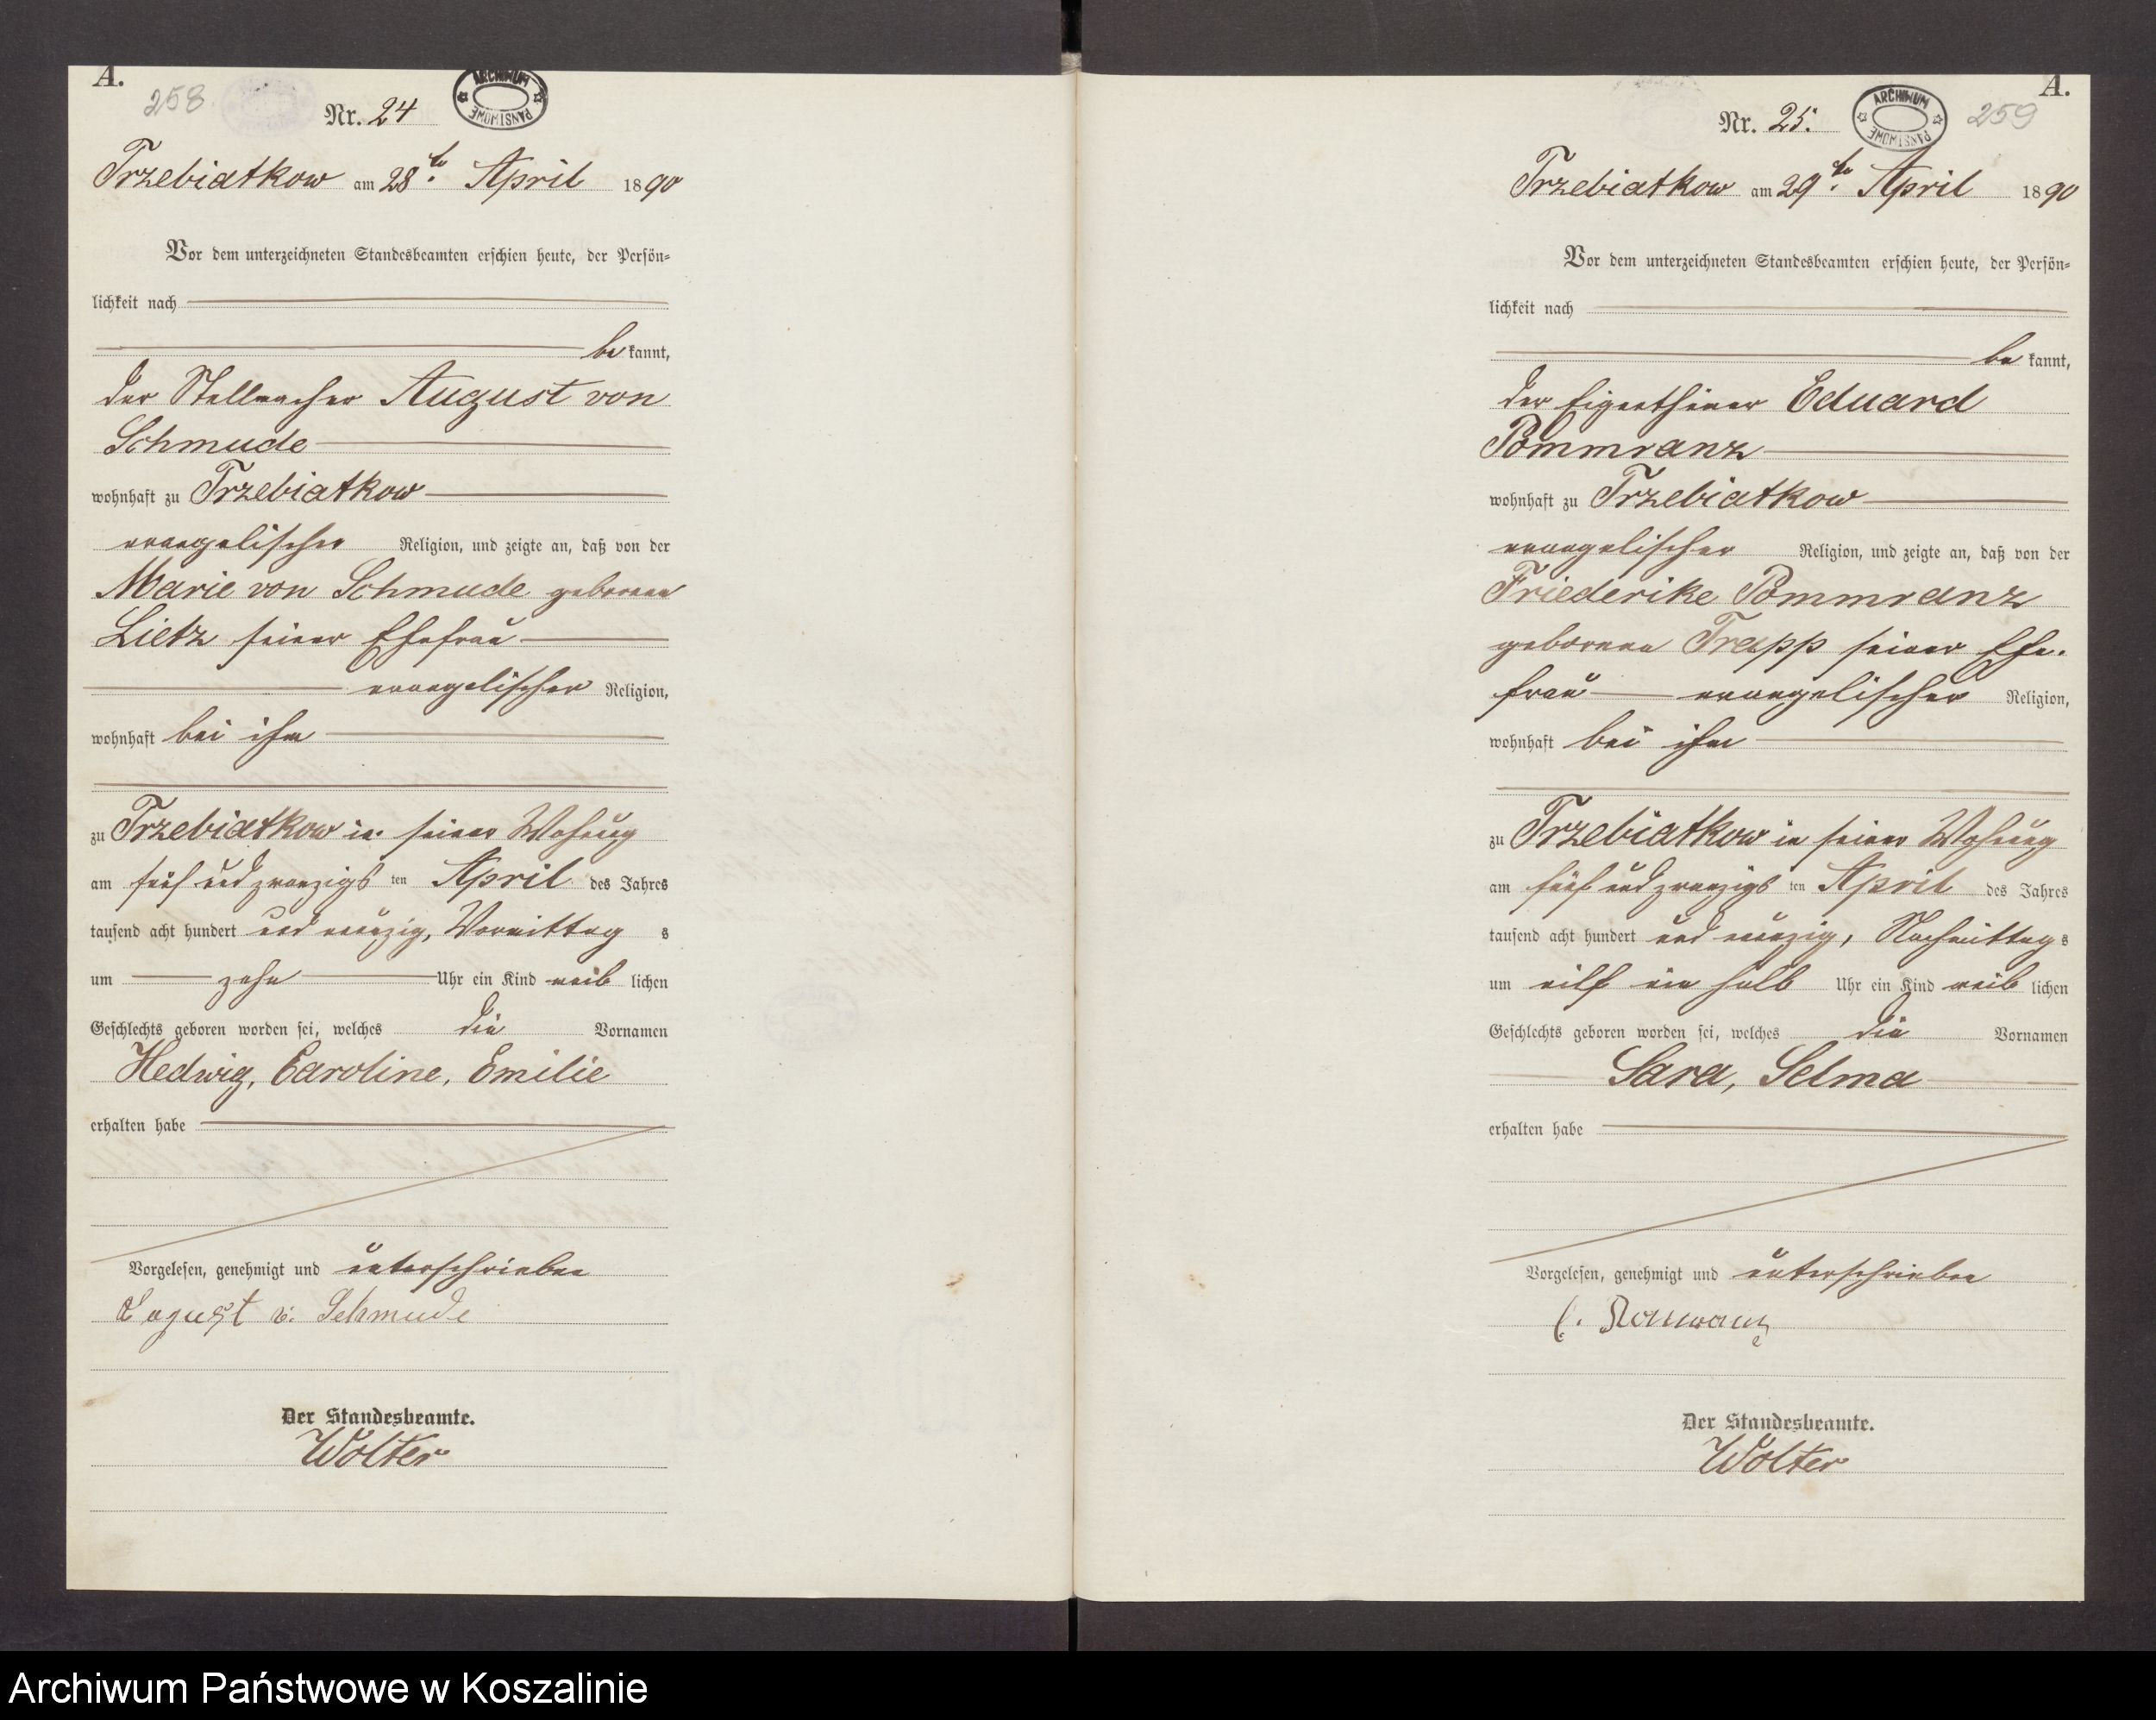 A.
258
Nr. 24
ARCHIWUM PAŃSTWOWE
Trzebiatkow am 28ten April 1890
Vor dem unterzeichneten Standesbeamten erschien heute, der Persön=
lichkeit nach
be kannt,
der Stellmacher August von
Schmude
wohnhaft zu Trzebiatkow
evangelischer Religion, und zeigte an, daß von der
Marie von Schmude geborenen
Lietz seiner Ehefrau
evangelischer Religion,
wohnhaft bei ihm
zu Trzebiatkow in seiner Wohnung
am fünf und zwanzigs ten April des Jahres
tausend acht hundert und neunzig, Vormittag s
um zehn Uhr ein Kind weib lichen
Geschlechts geboren worden sei, welches die Vornamen
Hedwig, Caroline, Emilie
erhalten habe
Vorgelesen, genehmigt und unterschrieben
August v. Schmude
Der Standesbeamte.
Wolter
A.
Nr. 25.
ARCHIWUM PAŃSTWOWE
259
Trzebiatkow am 29ten April 1890
Vor dem unterzeichneten Standesbeamten erschien heute, der Persön=
lichkeit nach
be kannt,
der Eigenthümer Eduard
Pommranz
wohnhaft zu Trzebiatkow
evangelischer Religion, und zeigte an, daß von der
Friederike Pommranz
geborenen Trapp seiner Ehe-
frau evangelischer Religion,
wohnhaft bei ihm
zu Trzebiatkow in seiner Wohnung
am fünf und zwanzigs ten April des Jahres
tausend acht hundert und neunzig, Nachmittag s
um eilf ein halb Uhr ein Kind weib lichen
Geschlechts geboren worden sei, welches die Vornamen
Sara, Selma
erhalten habe
Vorgelesen, genehmigt und unterschrieben
Der Standesbeamte.
Wolter
Archiwum Państwowe w Koszalinie